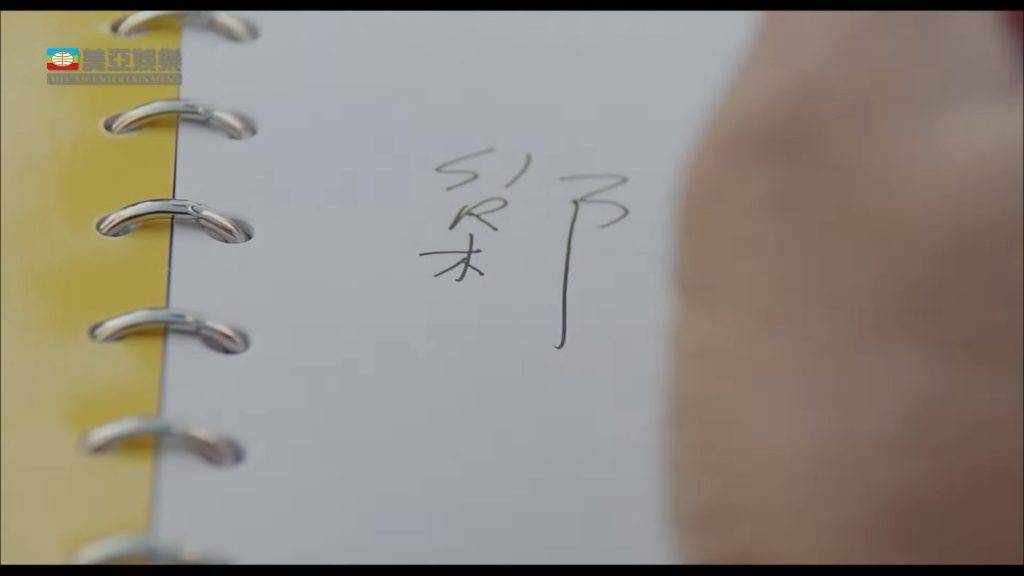 美亞娛樂
MEI AH ENTERTAINMENT
SI
R
木